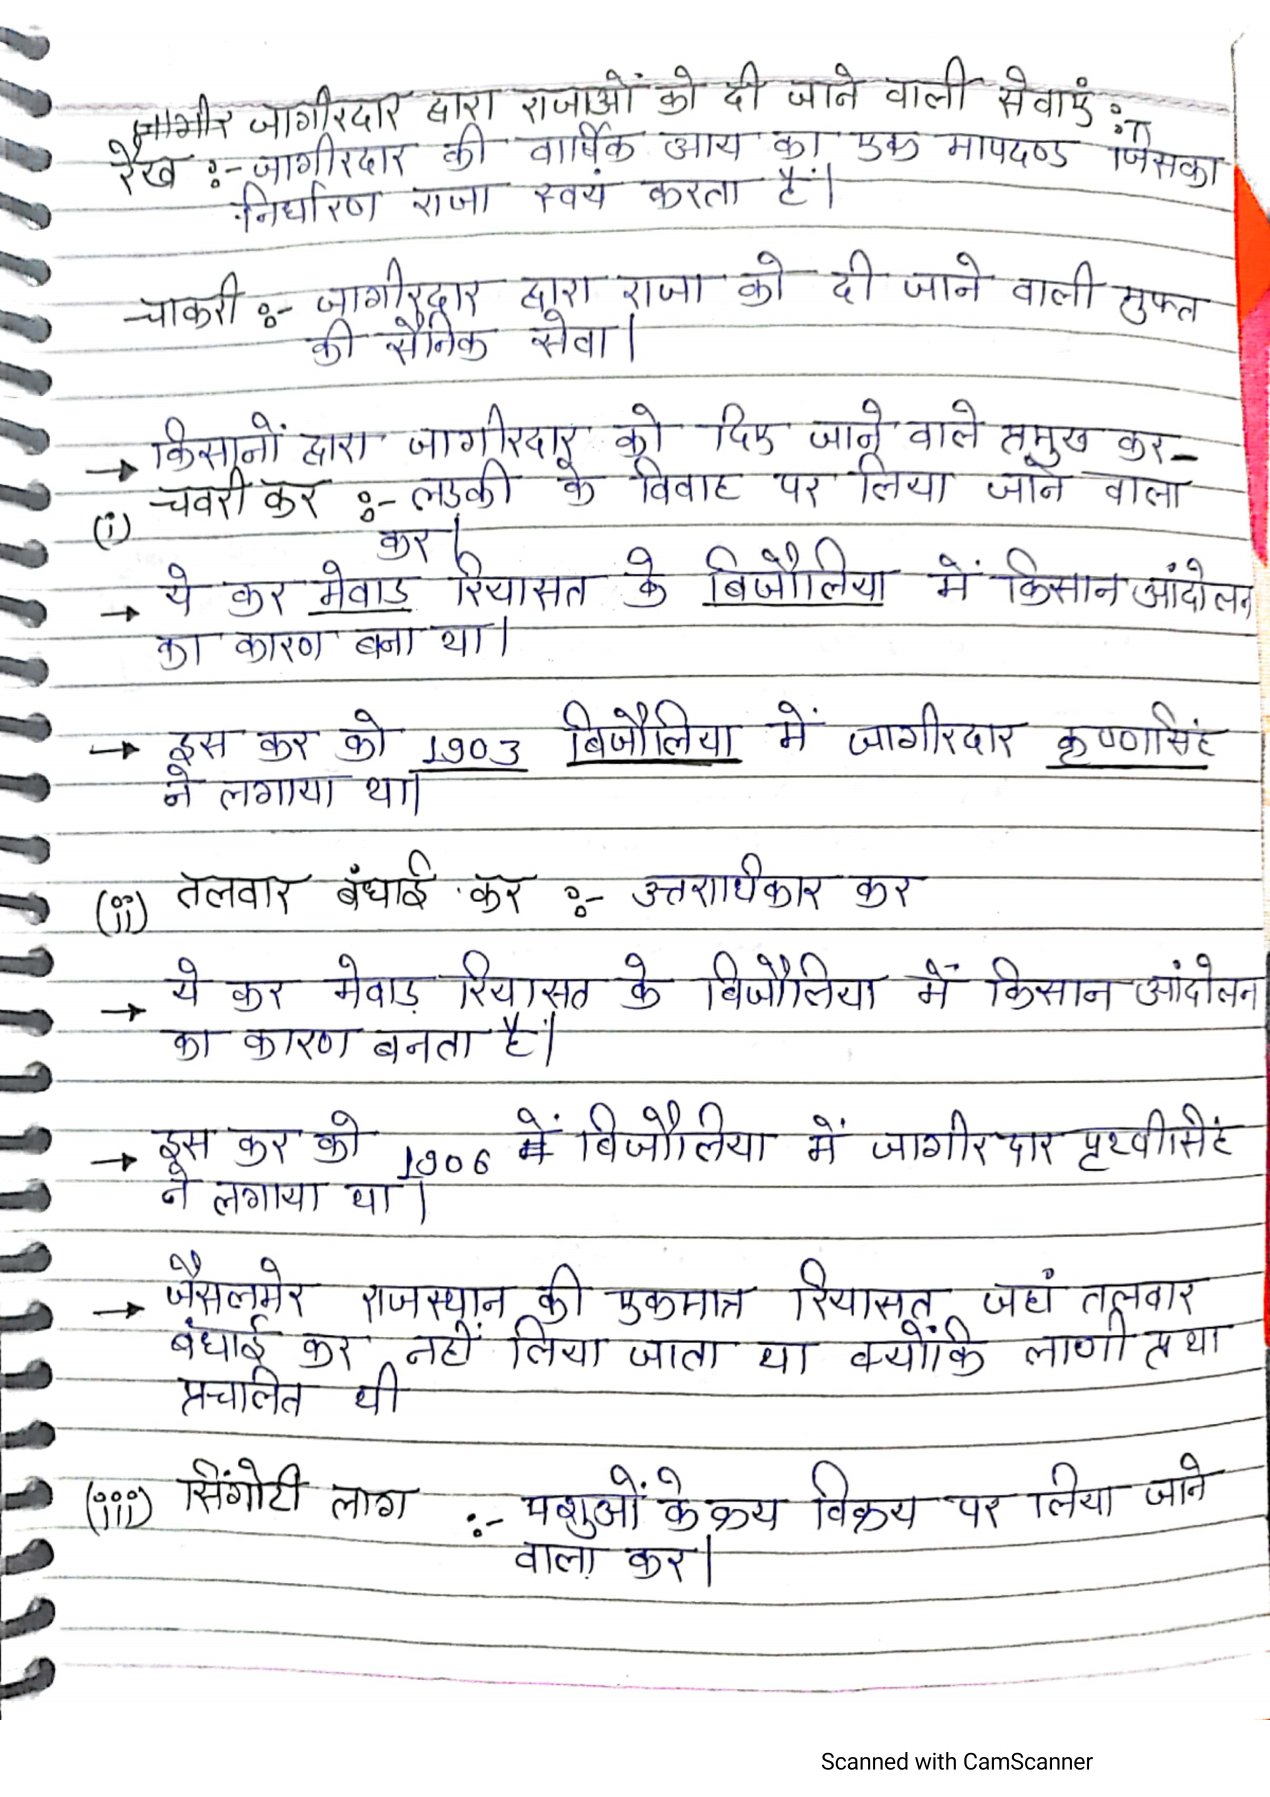 जागीरदार द्वारा राजाओं को दी जाने वाली सेवाएं :-
रेख :- जागीरदार की वार्षिक आय का एक मापदण्ड जिसका
निर्धारण राजा स्वयं करता है।
चाकरी :- जागीरदार द्वारा राजा को दी जाने वाली मुफ्त
की सैनिक सेवा।
→ किसानों द्वारा जागीरदार को दिए जाने वाले प्रमुख कर-
(i) चवरी कर :- लड़की के विवाह पर लिया जाने वाला
कर।
→ ये कर मेवाड़ रियासत के बिजौलिया में किसान आंदोलन
का कारण बना था।
→ इस कर को 1903 बिजौलिया में जागीरदार कृष्णसिंह
ने लगाया था।
(ii) तलवार बंधाई कर :- उत्तराधिकार कर
→ ये कर मेवाड़ रियासत के बिजौलिया में किसान आंदोलन
का कारण बनता है।
→ इस कर को 1906 में बिजौलिया में जागीरदार पृथ्वीसिंह
ने लगाया था।
→ जैसलमेर राजस्थान की एकमात्र रियासत जहां तलवार
बंधाई कर नहीं लिया जाता था क्योंकि लाणी प्रथा
प्रचलित थी
(iii) सिंगोटी लाग :- पशुओं के क्रय विक्रय पर लिया जाने
वाला कर।
Scanned with CamScanner